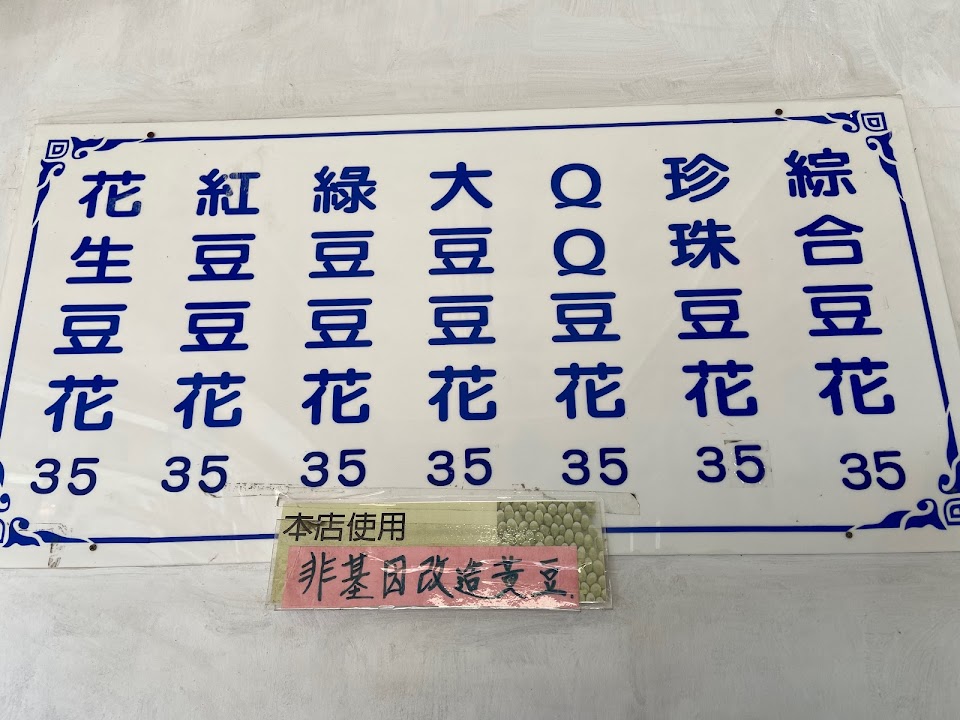 綜合豆花 35
珍珠豆花 35
QQ豆花 35
大豆豆花 35
綠豆豆花 35
紅豆豆花 35
花生豆花 35
本店使用
非基因改造黃豆